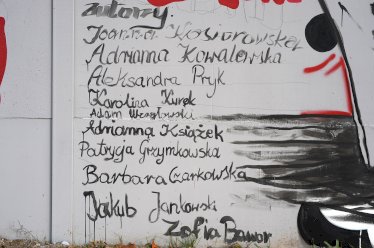 autorzy:
Joanna Kosiorowska
Adrianna Kowalewska
Aleksandra Pryk
Karolina Kurek
Adam
Adrianna Książek
Patrycja Grzymkowska
Barbara Czarkowska
Jakub Jankowski
Zofia Bawor